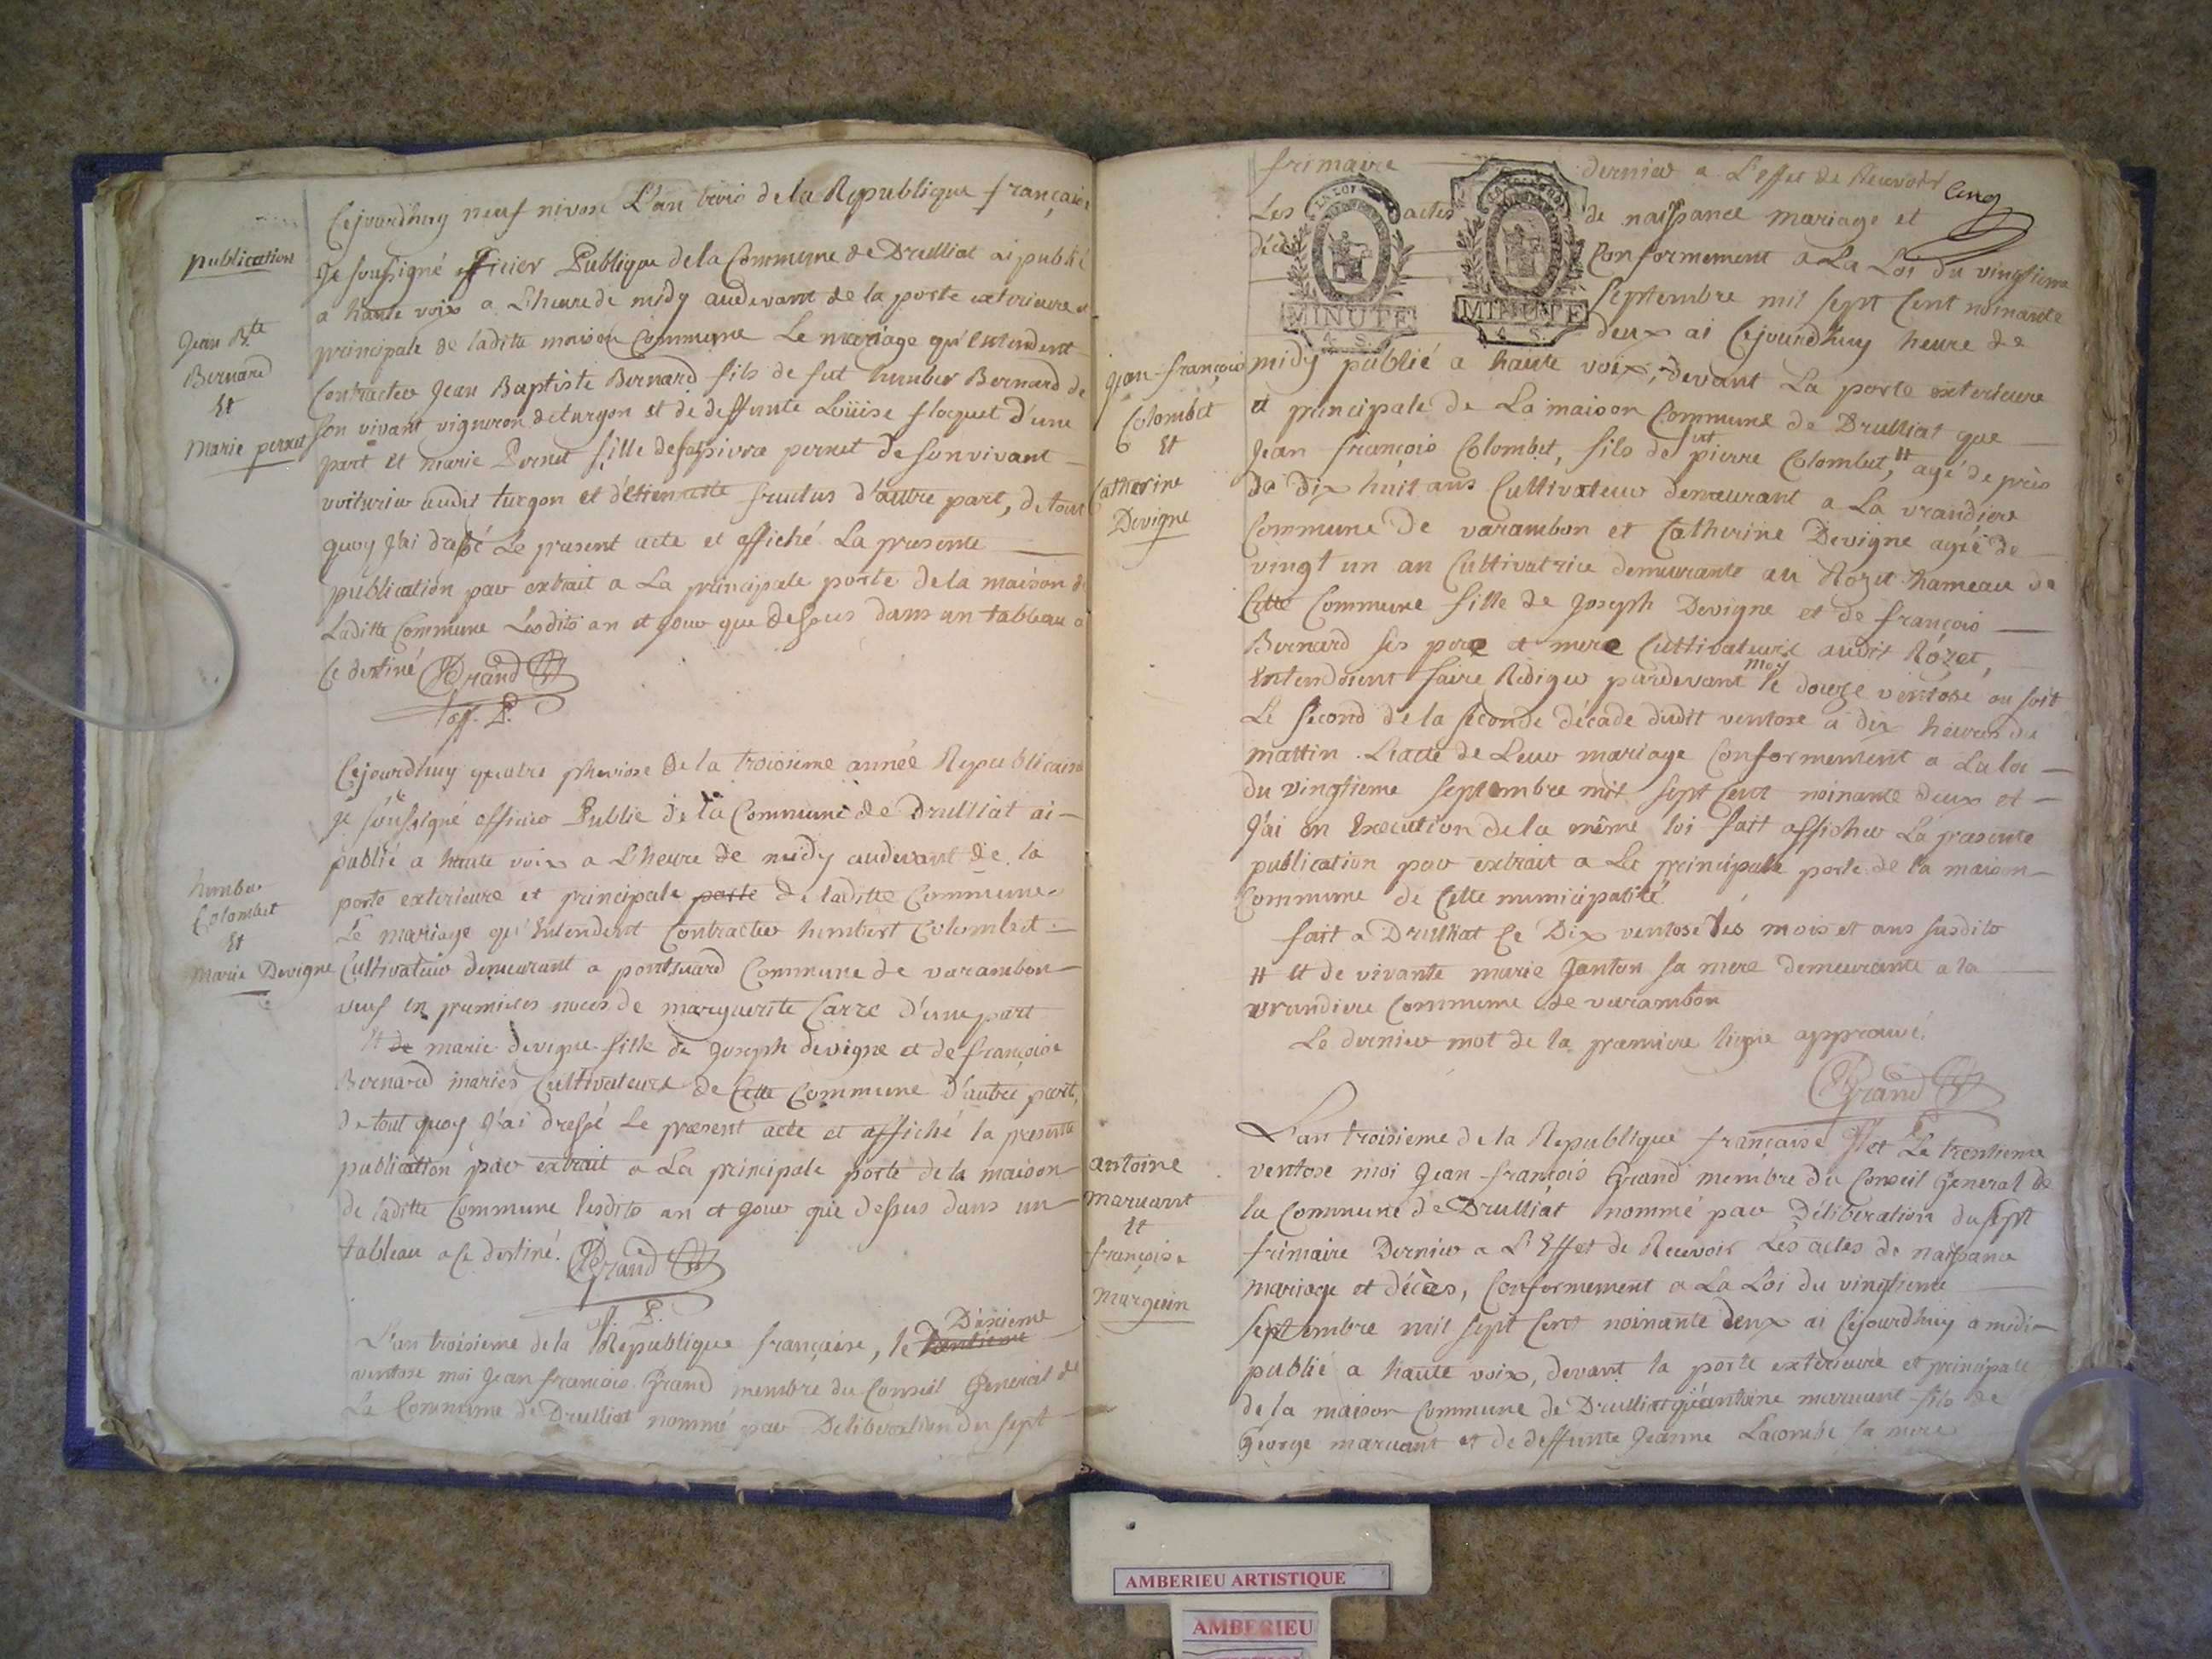 Cejourdhuy neuf nivose L'an trois de la Republique française
publication
Je soussigné officier Publique de la Commune de Drulliat ai publié
a haute voix a L'heure de midy audevant de la porte exterieure et
principale de laditte maison Commune Le mariage qu'Entendent
Jean Bte
Bernard
Et
Marie pernet
Contracter Jean Baptiste Bernard fils de fut humber Bernard de
son vivant vigneron de turgon et de deffunte Loüise floquet d'une
part et marie Pernet fille de fut pierre pernet de son vivant
voiturier audit turgon et d'Etiennette fructus d'autre part, de tout
quoy J'ai dressé Le present acte et affiché La presente
publication par extrait a La principale porte de la maison de
Laditte Commune Lesdits an et jour que dessus dans un tableau a
Ce destiné Grand
off. P.
Cejourdhuy quatre pluviose De la troisieme année Republicaine
je soussigné officier Public de la Commune de Drulliat ai
publié a haute voix a L'heure de midy audevant de la
porte exterieure et principale porte de laditte Commune
humber
Colombet
Et
Marie Devigne
Le mariage qu'Entendent Contracter humbert Colombet
Cultivateur demeurant a pontsuard Commune de varambon
veuf en premieres noces de marguerite Carre d'une part
Et de marie devigne fille de Joseph devigne et de françoise
Bernard mariés Cultivateurs de Cette Commune d'autre part,
de tout quoy J'ai dressé Le present acte et affiché la presente
publication par extrait a La principale porte de la maison
de laditte Commune lesdits an et jour que dessus dans un
tableau a Ce destiné. Grand
off. P.
L'an troisieme de la Republique française, le trentieme Dixieme
ventose moi Jean françois Grand membre du Conseil General de
La Commune de Drulliat nommé par Deliberation du sept
frimaire dernier a L'effet de Recevoir
Cinq
Les actes de naissance mariage et
décès Conformement a La Loi du vingtieme
Septembre mil sept Cent noinante
deux ai Cejourdhuy heure de
Jean-françois
Colombet
Et
Catherine
Devigne
LA LOI
MINUTE
4 S.
MINUTE
4 S.
midy publié a haute voix, devant La porte exterieure
et principale de La maison Commune de Drulliat que
Jean françois Colombet, fils de fut pierre Colombet, # agé de près
de dix huit ans Cultivateur demeurant a La vrandiere
Commune de varambon et Catherine Devigne agée de
vingt un an Cultivatrice demeurante au Rozet hameau de
Cette Commune fille de Joseph Devigne et de françois
Bernard ses pere et mere Cultivateurs audit Rozet,
Entendoient faire Rédiger pardevant moy le douze ventose ou soit
Le second de la seconde décade dudit ventose a dix heures du
mattin. L'acte de Leur mariage Conformement a La loi
du vingtieme septembre mil sept Cent noinante deux et
J'ai en Execution de la même loi fait afficher La presente
publication par extrait a La principale porte de la maison
Commune de Cette municipalité.
fait a Drulliat Ce Dix ventose Les mois et ans susdits
# et de vivante marie Janton sa mere demeurante a la
vrandiere Commune de varambon
Le dernier mot de la premiere ligne approuvé.
Grand
L'an troisieme de la Republique française et Le trentieme
antoine
maruant
Et
françoise
marguin
ventose moi Jean-françois Grand membre du Conseil General de
la Commune de Drulliat nommé par Déliberation du sept
frimaire Dernier a L'Effet de Recevoir Les actes de naissance
mariage et décès, Conformement a La Loi du vingtieme
septembre mil sept Cent noinante deux ai Cejourdhuy a midi
publié a haute voix, devant la porte exterieure et principale
de la maison Commune de Drulliat qu'antoine maruant fils de
George maruant et de deffunte Jeanne Lacombe sa mere
AMBERIEU ARTISTIQUE
AMBERIEU